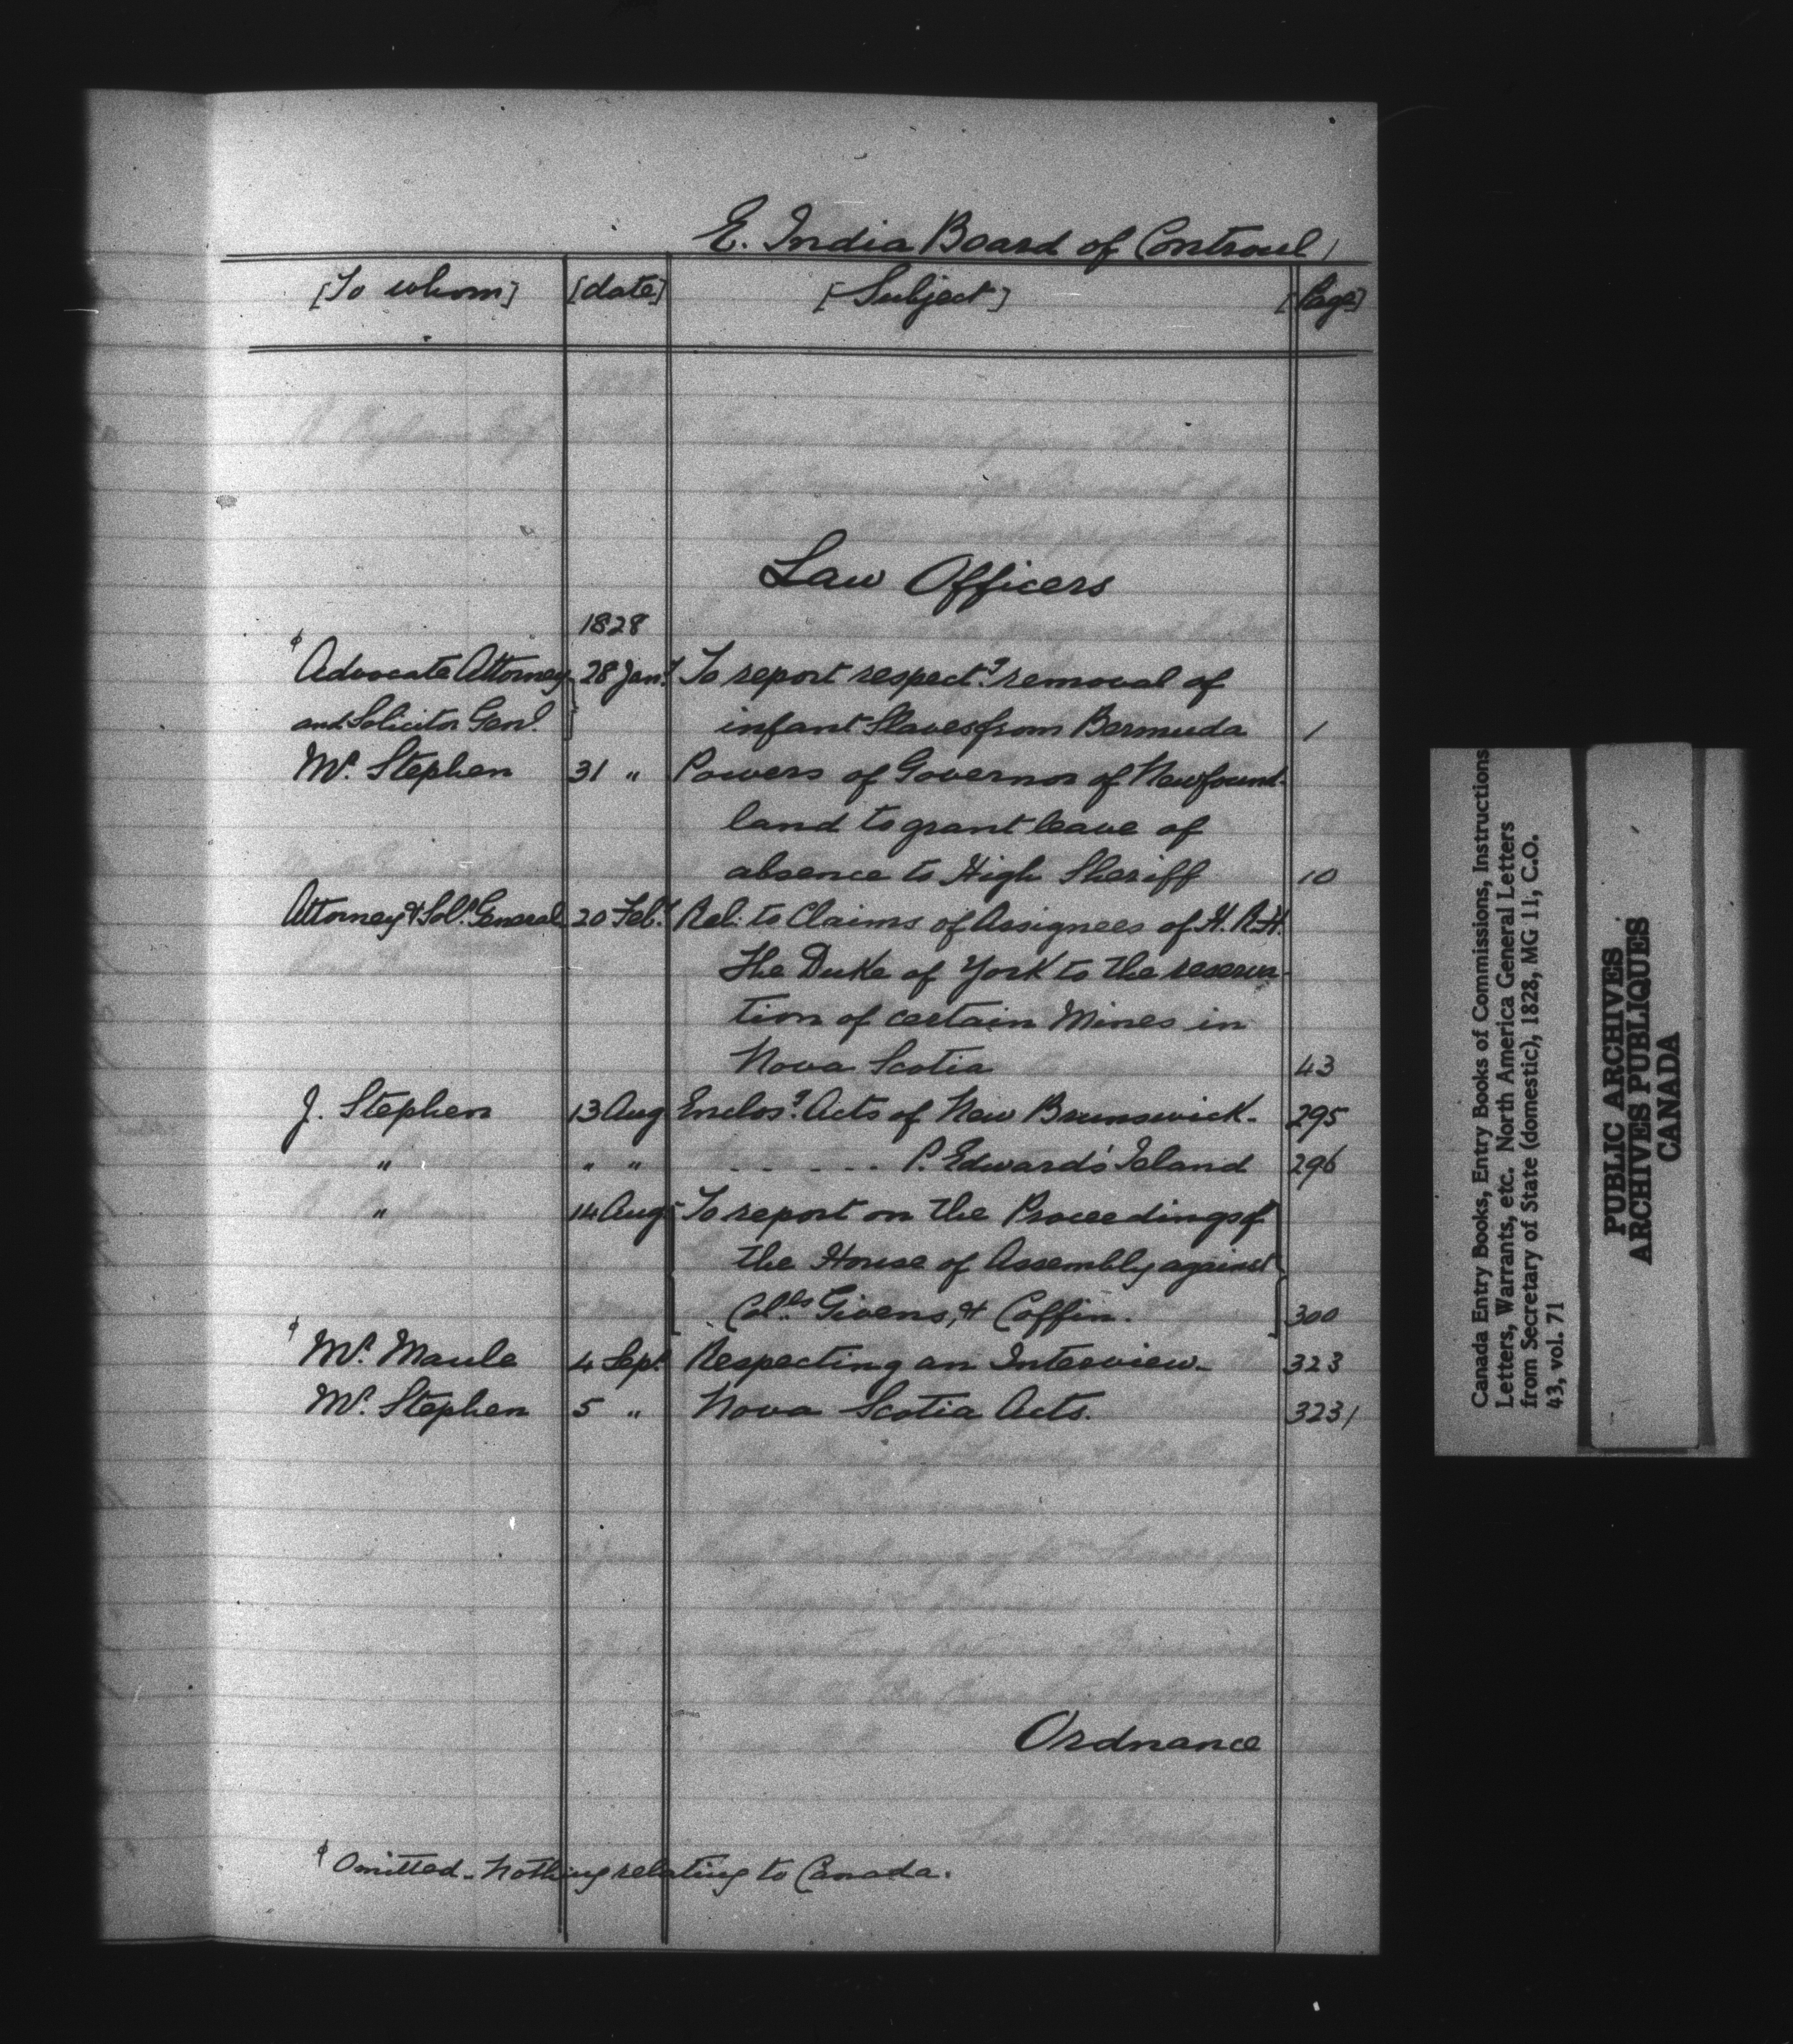 E. India Board of Controul /
[To whom] [date] [Subject] [Page]
Law Officers
1828
ϕ Advocate Attorney 28 Jany. To report respectg. removal of
and Solicitor Genl. } infant Slaves from Bermuda 1
Mr. Stephen 31 " Powers of Governor of Newfound-
land to grant leave of
absence to High Sheriff 10
Attorney & Solr. General 20 Feby. Rel. to Claims of Assignees of H.R.H.
The Duke of York to the reserva-
tion of certain Mines in
Nova Scotia 43
J. Stephen 13 Aug Enclosg. Acts of New Brunswick - 295
" " " - - - - - P. Edward's Island 296
" 14 Aug [To report on the Proceedings of
the House of Assembly against
Colls. Givens, & Coffin. ] 300
ϕ Mr. Maule 4 Sept. Respecting an Interview - 323
Mr. Stephen 5 " Nova Scotia Acts. 323 /
Ordnance
ϕ Omitted - nothing relating to Canada.
Canada Entry Books, Entry Books of Commissions, Instructions
Letters, Warrants, etc. North America General Letters
from Secretary of State (domestic), 1828, MG 11, C.O.
43, vol. 71
PUBLIC ARCHIVES
ARCHIVES PUBLIQUES
CANADA